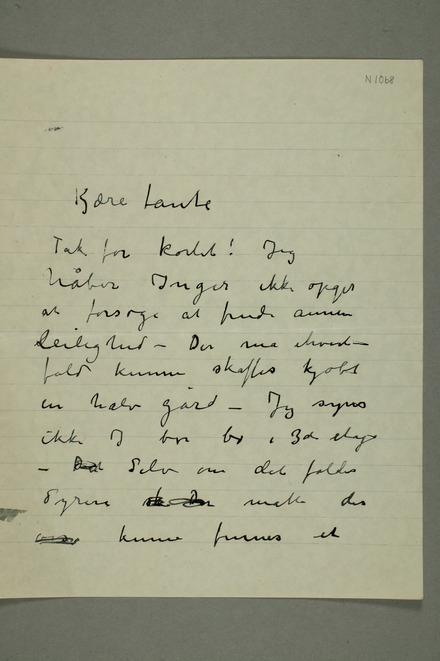 N 1068
Kjære tante
Tak for kortet! Jeg
håber Inger ikke opger
at forsøge at finde annen
Leilighed – Der må ihvert-
fald kunne skaffes kjøbt
en halv gård – Jeg syns
ikke I bør bo i 3de etage
– Selv om det faldes
dyrere måtte der
kunne finnes et